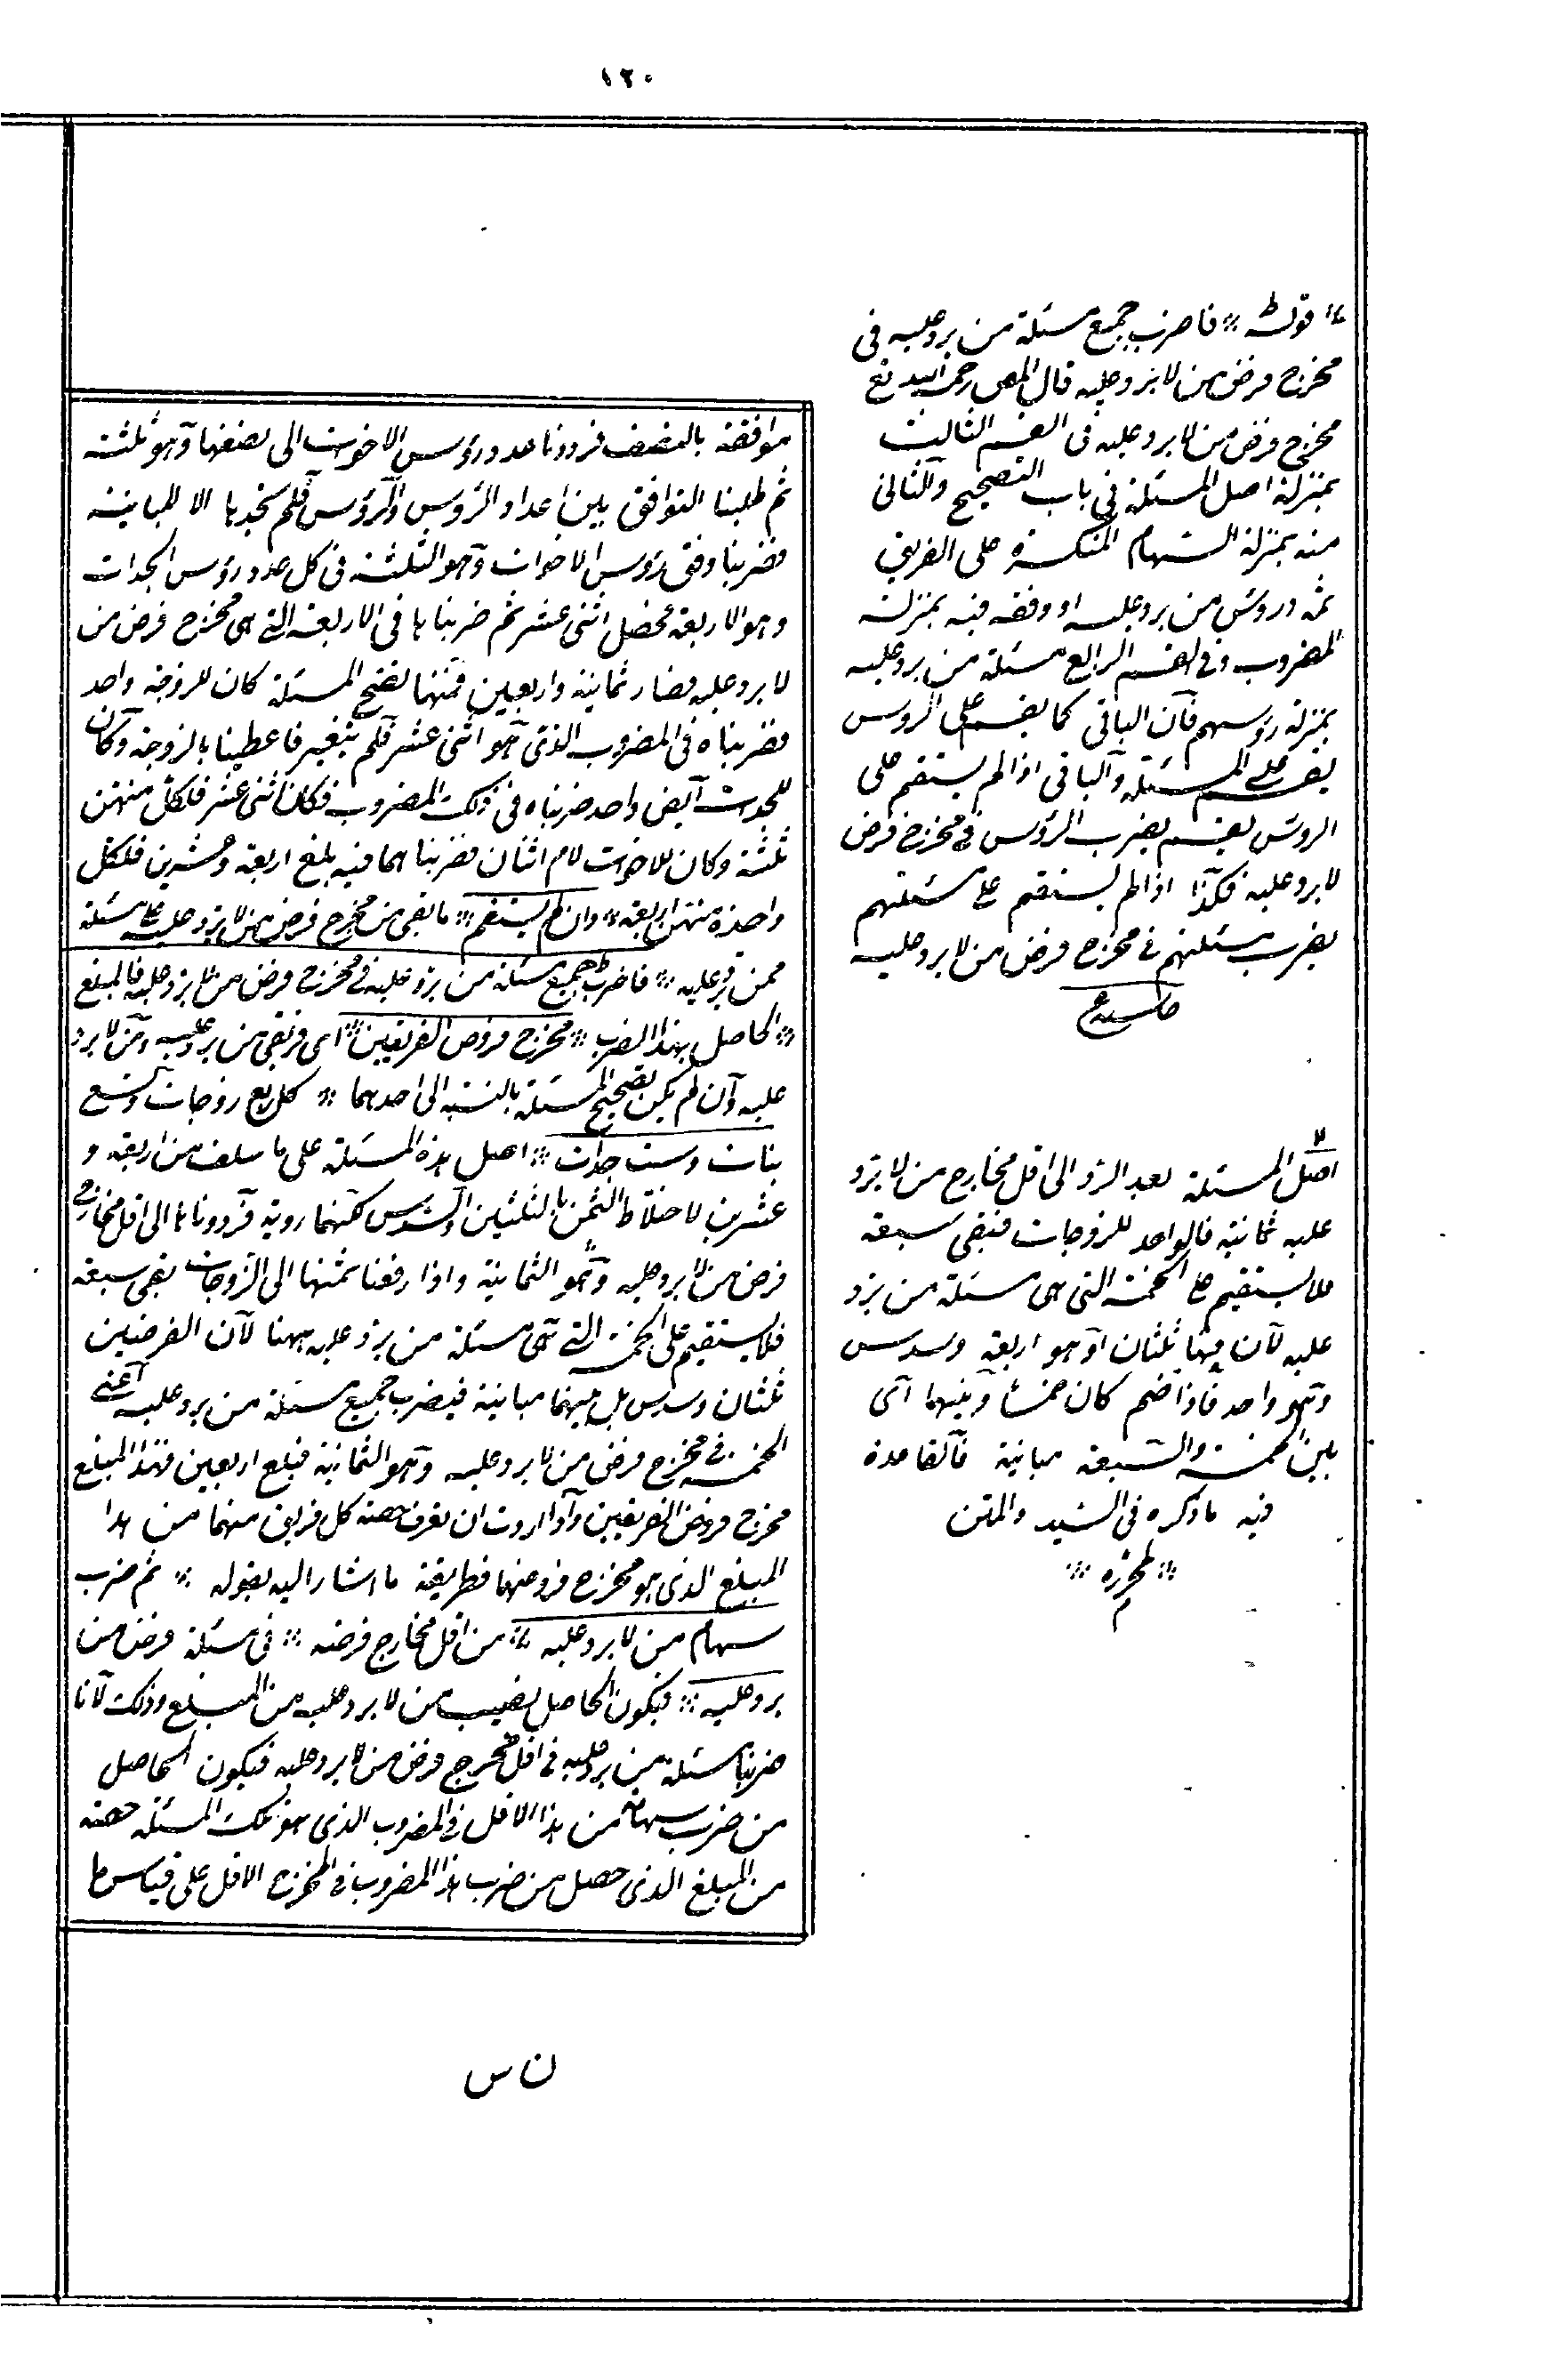 ١٢٠
موافقة بالنصف فرددنا عدد رؤس الاخوات الى نصفها وهو ثلثة
ثم طلبنا التوافق بين اعداد الرؤس والرؤس فلم نجدها الا المباينة
فضربنا وفق رؤس الاخوات وهو الثلثة فى كل عدد رؤس الجدات
وهو الاربعة فحصل اثنى عشر ثم ضربناها فى الاربعة التى هى مخرج فرض من
لا يرد عليه فصار ثمانية واربعين فمنها تصح المسئلة كان للزوجة واحد
فضربناه فى المضروب الذى هو اثنى عشر فلم يتغير فاعطينا بالزوجة وكان
للجدات ايض واحد ضربناه فى ذلك المضروب فكان اثنى عشر فلكل منهن
ثلثة وكان للاخوات لام اثنان فضربناهما فيه بلغ اربعة وعشرين فلكل
واحدة منهن اربعة وان لم يستقم ما بقى من مخرج فرض من لا يرد عليه على مسئلة
من يرد عليه فاضرب جميع مسئلة من يرد عليه فى مخرج فرض من لا يرد عليه فالمبلغ
الحاصل بهذا الضرب مخرج فروض الفريقين اى فريق من يرد عليه ومن لا يرد
عليه وان لم يكن تصحيح المسئلة بالنسبة الى احدهما كاربع زوجات وتسع
بنات وست جدات اصل هذه المسئلة على ما سلف من اربعة و
عشرين لاختلاط الثمن بالثلثين والسدس لكنها ردية فرددناها الى اقل مخارج
فرض من لا يرد عليه وهو الثمانية واذا رفعنا ثمنها الى الزوجات بقى سبعة
فلا يستقيم على الخمسة التى هى مسئلة من يرد عليه ههنا لان الفرضين
ثلثان وسدس بل بينهما مباينة فيضرب جميع مسئلة من يرد عليه اعنى
الخمسة فى مخرج فرض من لا يرد عليه وهو الثمانية فبلغ اربعين فهذا المبلغ
مخرج فروض الفريقين واذا اردت ان تعرف حصة كل فريق منهما من هذا
المبلغ الذى هو مخرج فروضهما فطريقة ما اشار اليه بقوله ثم ضرب
سهام من لا يرد عليه من اقل مخارج فرضه فى مسئلة فرض من
يرد عليه فيكون الحاصل نصيب من لا يرد عليه من المبلغ وذلك لانا
ضربنا مسئلة من يرد عليه فى اقل مخرج فرض من لا يرد عليه فيكون الحاصل
من ضرب سهامه من هذا الاقل فى المضروب الذى هو تلك المسئلة حصته
من المبلغ الذى حصل من ضرب هذا المضروب فى المخرج الاقل على قياس ما
قوله فاضرب جميع مسئلة من يرد عليه فى
مخرج فرض من لا يرد عليه قال المص رحمه الله تع
مخرج فرض من لا يرد عليه فى القسم الثالث
بمنزلة اصل المسئلة فى باب التصحيح والثانى
منه بمنزلة السهام المنكسرة على الفريق
ثمه ورؤس من يرد عليه او وفقه فيه بمنزلة
المضروب وفى القسم الرابع مسئلة من يرد عليه
بمنزلة رؤسهم فان الباقى كما يقسم على الرؤس
يقسم على المسئلة والباقى اذا لم يستقم على
الرؤس يقسم يضرب الرؤس فى مخرج فرض
لا يرد عليه فكذا اذا لم يستقم على مسئلتهم
يضرب مسئلتهم فى مخرج فرض من لا يرد عليه
اصل المسئلة بعد الرد الى اقل مخارج من لا يرد
عليه ثمانية فالواحد للزوجات فبقى سبعة
فلا يستقيم على الخمسة التى هى مسئلة من يرد
عليه لان فيها ثلثان وهو اربعة وسدس
وهو واحد فاذا ضم كان خمسا وبينهما اى
بين الخمسة والسبعة مباينة فالقاعدة
فيه ما ذكره فى السيد والمتن
لمحرره
ن س